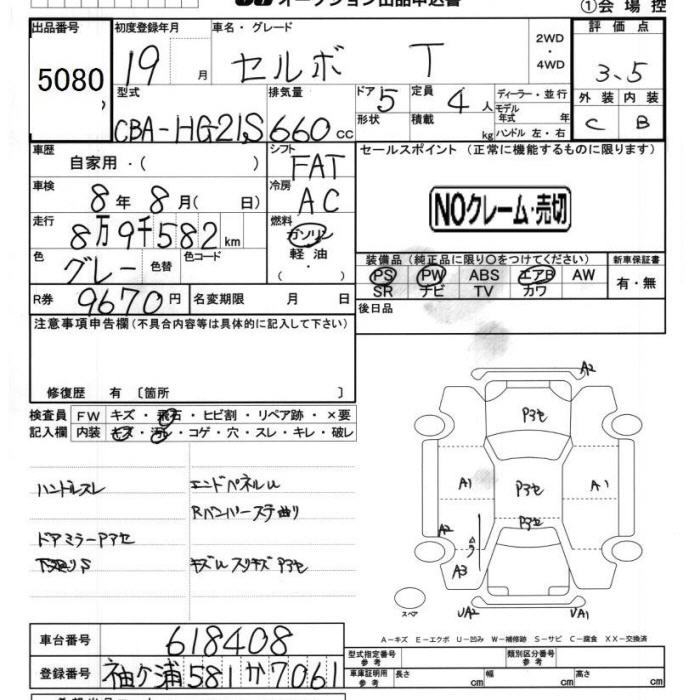 オークション出品申込書
①会場控
出品番号 5080
初度登録年月 19 月
車名・グレード セルボ T
2WD ・ 4WD
評価点 3.5
型式 CBA-HG21S
排気量 660 cc
ドア 5 形状
定員 4 人 積載 kg
ディーラー・並行
モデル年式 年
ハンドル 左・右
外装 内装
C B
車歴 自家用・( )
シフト FAT
セールスポイント (正常に機能するものに限ります)
NOクレーム・売切
車検 8年 8月( 日)
冷房 AC
走行 8万9千582 km
燃料 ガソリン 軽油 ( ・ )
色 グレー 色替 色コード
装備品 (純正品に限り○をつけてください) 新車保証書
PS PW ABS エアB AW 有・無
SR ナビ TV カワ
R券 9670円 名変期限 月 日
後日品
注意事項申告欄(不具合内容等は具体的に記入して下さい)
修復歴 有 〔箇所 〕
検査員 FW キズ・飛石・ヒビ割・リペア跡・×要
記入欄 内装 キズ・汚レ・コゲ・穴・スレ・キレ・破レ
ハンドルスレ
エンドパネルU
Rバンパーステ曲り
ドアミラーP3セ
キズU スリキズ P3セ
A2
P3セ
A1 P3セ A1
P3セ
A2
A3
スペア
UA2 UA1
A-キズ E-エクボ U-凹み W-補修跡 S-サビ C-腐食 XX-交換済
車台番号 618408
型式指定番号 参考 類別区分番号 参考
登録番号 袖ヶ浦 581 か 7061
車庫証明用 参考 長さ cm 幅 cm 高さ cm